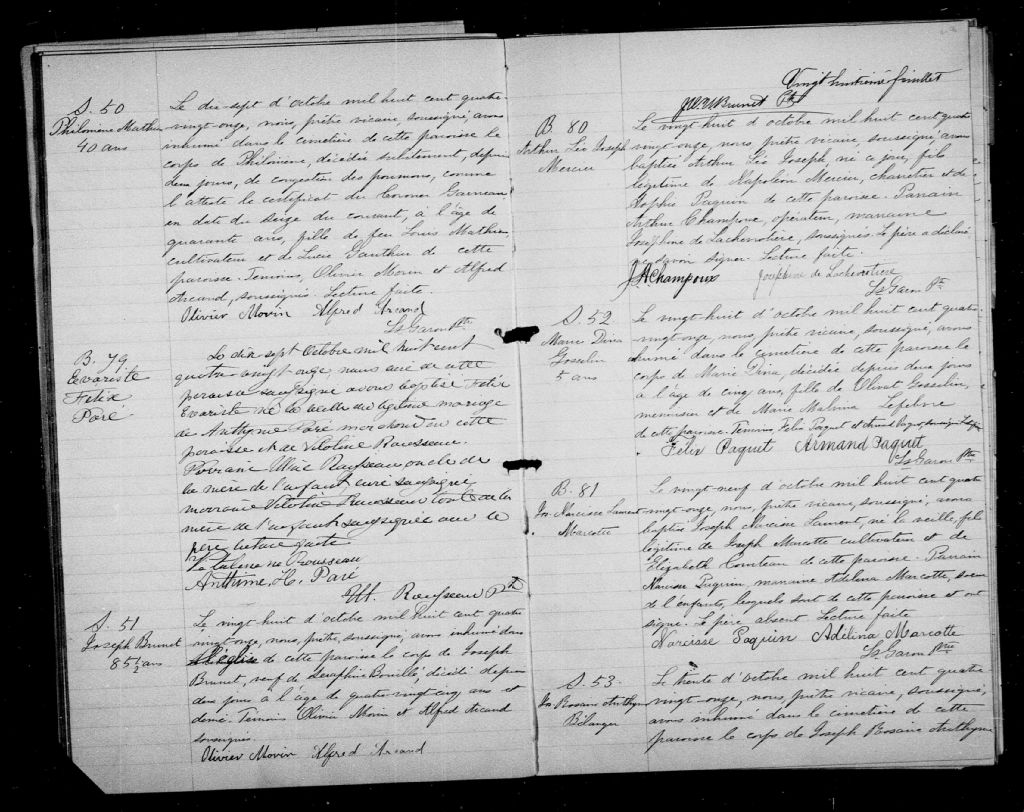 S. 50
Philomène Mathieu
40 ans
Le dix-sept d'octobre mil huit cent quatre-
vingt-onze, nous, prêtre vicaire, soussigné, avons
inhumé dans le cimetière de cette paroisse le
corps de Philomène, décédée subitement, depuis
deux jours, de congestion des poumons, comme
l'atteste le certificat du Coroner Garneau
en date du seize du courant, à l'âge de
quarante ans, fille de feu Louis Mathieu,
cultivateur et de Luce Gauthier de cette
paroisse. Témoins, Olivier Morin et Alfred
Arcand, soussignés. Lecture faite.
Olivier Morin Alfred Arcand
Ls Garon Ptre
B. 79
Evariste
Felix
Paré
Le dix-sept Octobre mil huit cent
quatre-vingt onze, nous curé de cette
paroisse soussigné avons baptisé Felix
Evariste né la veille du légitime mariage
de Anthyme Paré marchand de cette
paroisse et de Vitaline Rousseau.
Parrain Ulric Rousseau oncle de
la mère de l'enfant curé soussigné
marraine Vitaline Rousseau tante de la
mère de l'enfant soussignés avec le
père lecture faite
Vitaline Rousseau
Anthime H. Paré
Rousseau Pt
S. 51
Joseph Brunet
85 1/2 ans
Le vingt huit d'octobre mil huit cent quatre
vingt-onze, nous, prêtre, soussigné, avons inhumé dans
l'église de cette paroisse le corps de Joseph
Brunet, veuf de Séraphine Bouillé, décédé depuis
deux jours à l'âge de quatre-vingt cinq ans et
demi. Témoins Olivier Morin et Alfred Arcand
soussignés.
Olivier Morin Alfred Arcand
Vingt huitième feuillet
Brunet Ptre
B. 80
Arthur Léo Joseph
Mercier
Le vingt huit d'octobre mil huit cent quatre
vingt-onze, nous, prêtre vicaire, soussigné, avons
baptisé Arthur Léo Joseph, né ce jour, fils
légitime de Napoléon Mercier, charretier et de
Sophie Paquin de cette paroisse. Parrain
Arthur Champoux, opérateur, marraine
Joséphine de Lachevrotière, soussignés. Le père a déclaré
ne savoir signer. Lecture faite.
J. A Champoux Josephine de Lachevrotière
Ls Garon Ptre
S. 52
Marie Dina
Gosselin
5 ans
Le vingt-huit d'octobre mil huit cent quatre-
vingt-onze, nous, prêtre vicaire, soussigné, avons
inhumé dans le cimetière de cette paroisse le
corps de Marie Dina, décédée depuis deux jours
à l'âge de cinq ans, fille de Olivat Gosselin,
menuisier et de Marie Malvina Lefebvre
de cette paroisse. Témoins, Félix Paquet et Armand Paquet, soussignés. Lecture
Félix Paquet Armand Paquet
Ls Garon Ptre
B. 81
Jos. Narcisse Laurent
Marcotte
Le vingt-neuf d'octobre mil huit cent quatre
vingt-onze, nous, prêtre vicaire, soussigné, avons
baptisé Joseph Narcisse Laurent, né la veille, fils
légitime de Joseph Marcotte cultivateur et de
Elizabeth Comteau de cette paroisse. Parrain
Narcisse Paquin, marraine Adelina Marcotte, soeur
de l'enfant, lesquels sont de cette paroisse et ont
signé. Le père absent. Lecture faite
Narcisse Paquin Adélina Marcotte
Ls Garon Ptre
S. 53.
Jos. Rosaire Anthyme
Bélanger
Le trente d'octobre mil huit cent quatre
vingt-onze, nous, prêtre vicaire, soussigné,
avons inhumé dans le cimetière de cette
paroisse le corps de Joseph Rosaire Anthyme